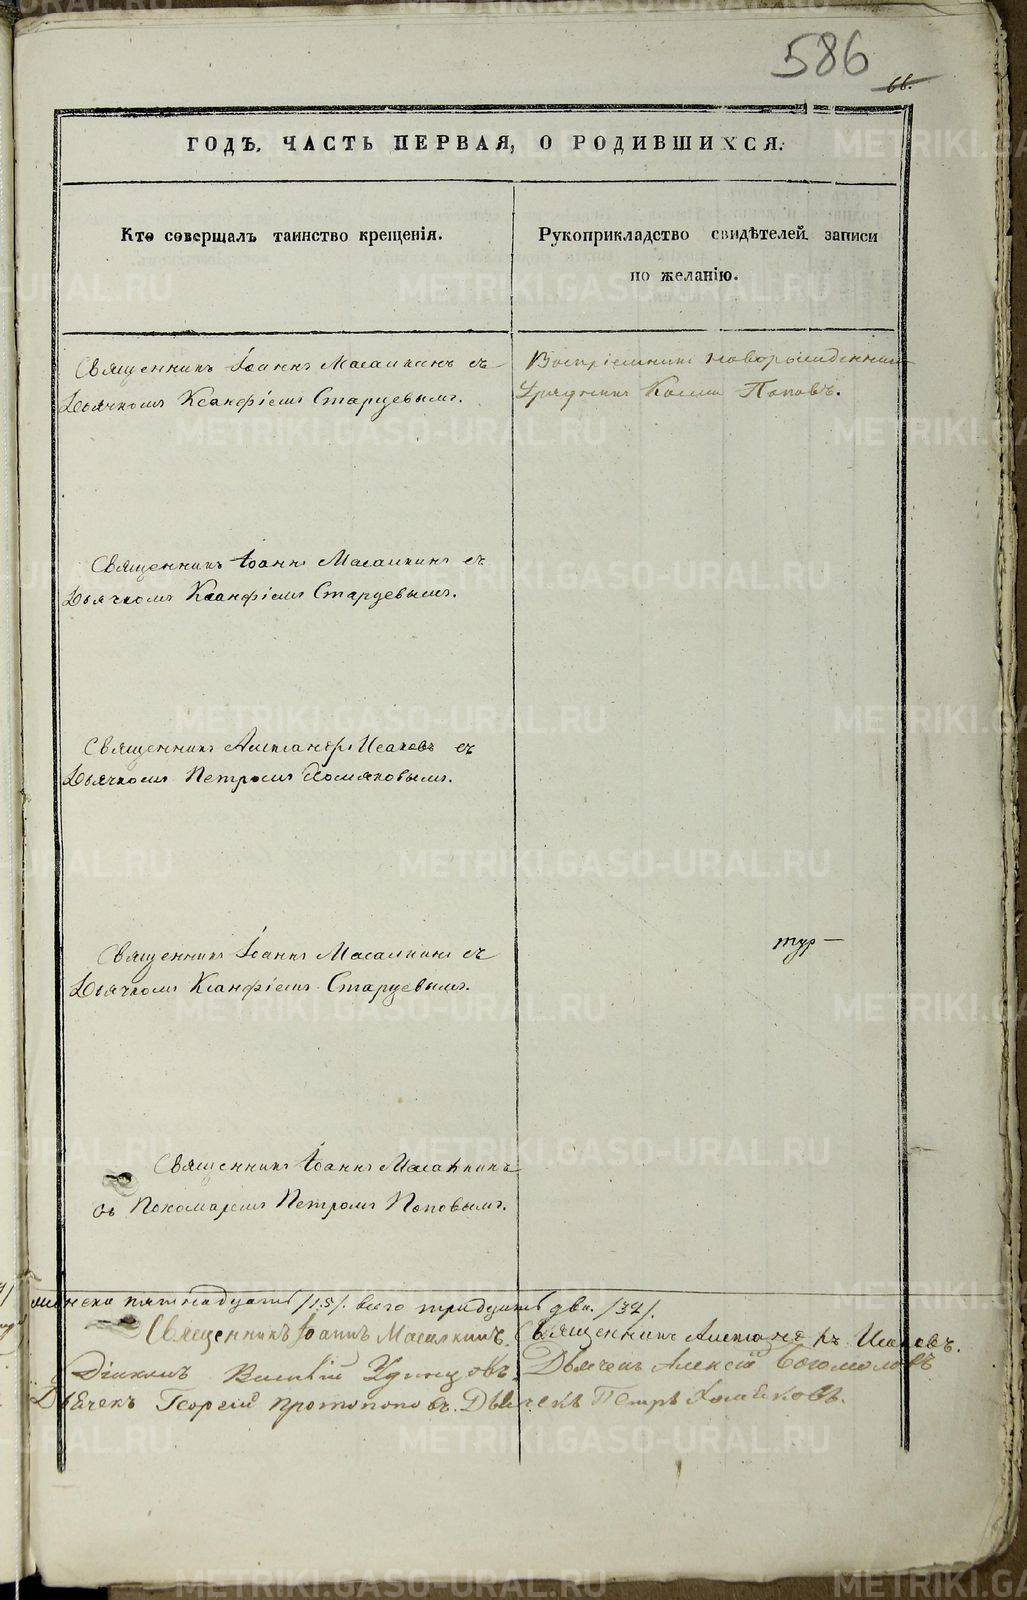 586
66.
ГОДЪ, ЧАСТЬ ПЕРВАЯ, О РОДИВШИХСЯ.
Кто совершалъ таинство крещенія.
Рукоприкладство свидѣтелей записи
по желанію.
Священникъ Іоаннъ Масалкинъ съ
Дьячкомъ Ксанфіемъ Старцевымъ.
Воспріемникъ новорожденнаго
Урядникъ Косма Поповъ.
Священникъ Іоаннъ Масалкинъ съ
Дьячкомъ Ксанфіемъ Старцевымъ.
Священникъ Александръ Исаковъ съ
Дьячкомъ Петромъ Хомяковымъ.
Священникъ Іоаннъ Масалкинъ съ
Дьячкомъ Ксанфіемъ Старцевымъ.
тур—
Священникъ Іоаннъ Масалкинъ
съ Пономаремъ Петромъ Поповымъ.
женска пятнадцать /15/. всего тридцать два. /32/.
Священникъ Іоаннъ Масалкинъ. Священникъ Александръ Исаковъ.
Діаконъ Василій Удинцовъ. Дьячекъ Алексій Богомоловъ
Дьячекъ Георгій Протопоповъ. Дьячекъ Петръ Хомяковъ.
METRIKI.GASO-URAL.RU